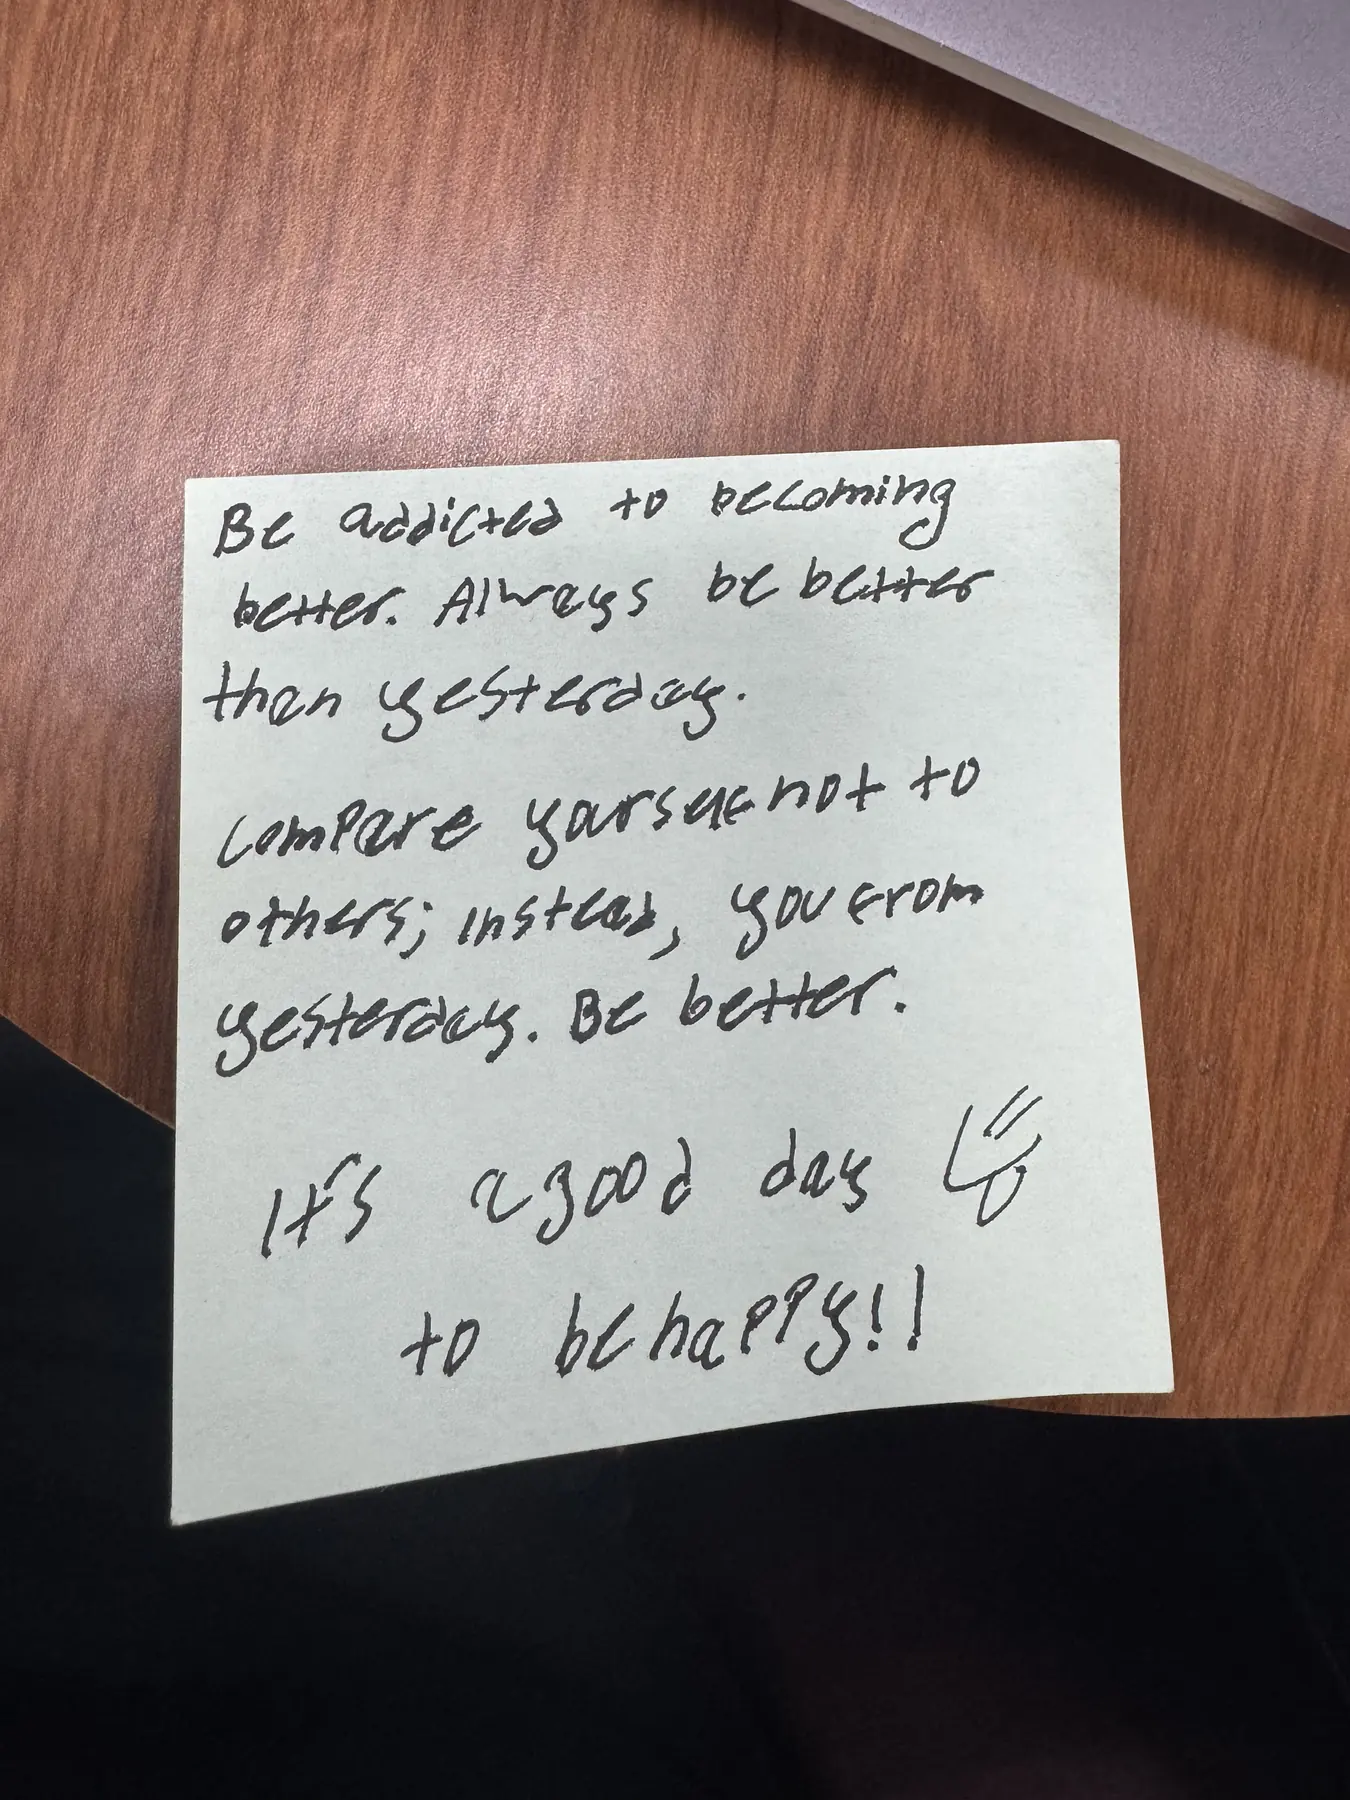 Be addicted to becoming
better. Always be better
than yesterday.
Compare yourself not to
others; instead, you from
yesterday. Be better.
It's a good day
to be happy!!